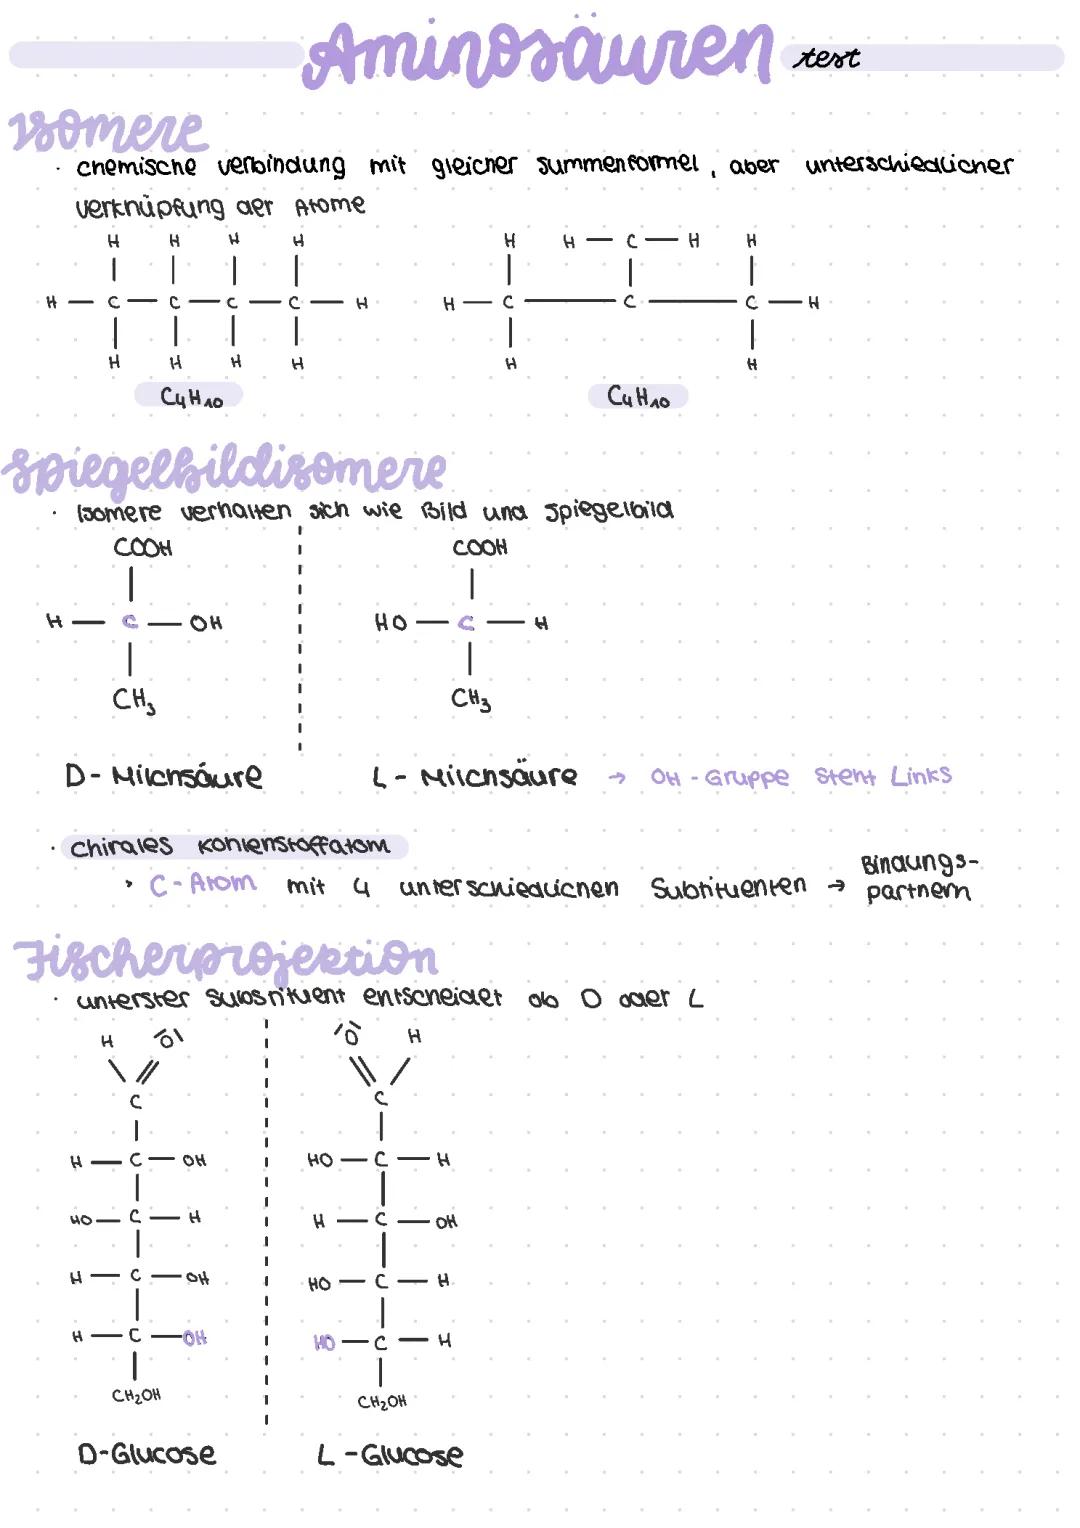 Aminosäuren test
Isomere
· chemische Verbindung mit gleicher Summenformel, aber unterschiedlicher
Verknüpfung der Atome
H H H H H H — C — H H
H — C — C — C — C — H H — C — C — C — H
H H H H H H
C₄H₁₀ C₄H₁₀
Spiegelbildisomere
· Isomere verhalten sich wie Bild und Spiegelbild
COOH COOH
H — C — OH HO — C — H
CH₃ CH₃
D - Milchsäure L - Milchsäure → OH - Gruppe steht Links
· Chirales Kohlenstoffatom
› C - Atom mit 4 unterschiedlichen Substituenten → Bindungs-
partnern
Fischerprojektion
· unterster Substituent entscheidet ob D oder L
H O O H
C C
H — C — OH HO — C — H
HO — C — H H — C — OH
H — C — OH HO — C — H
H — C — OH HO — C — H
CH₂OH CH₂OH
D-Glucose L-Glucose